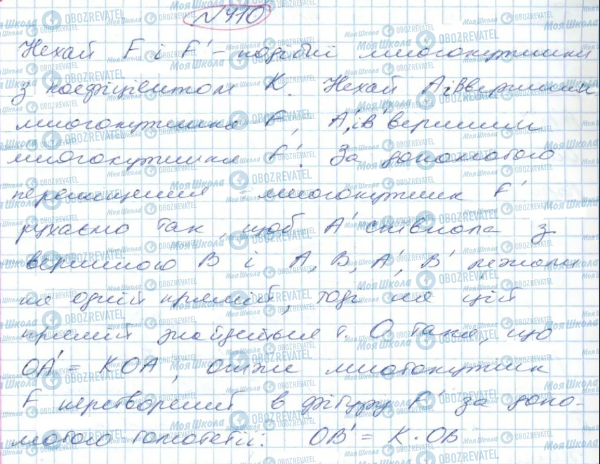 №410
Нехай F і F' - подібні многокутники
з коефіцієнтом K. Нехай A і B вершини
многокутника F, A' і B' вершини
многокутника F'. За допомогою
переміщення многокутник F'
рухаємо так, щоб A' співпала з
вершиною B і A, B, A', B' лежали
на одній прямій, тоді на цій
прямій знайдеться т. O така, що
OA' = KOA, отже многокутник
F перетворений в фігуру F' за допо-
могою гомотетії. OB' = K · OB